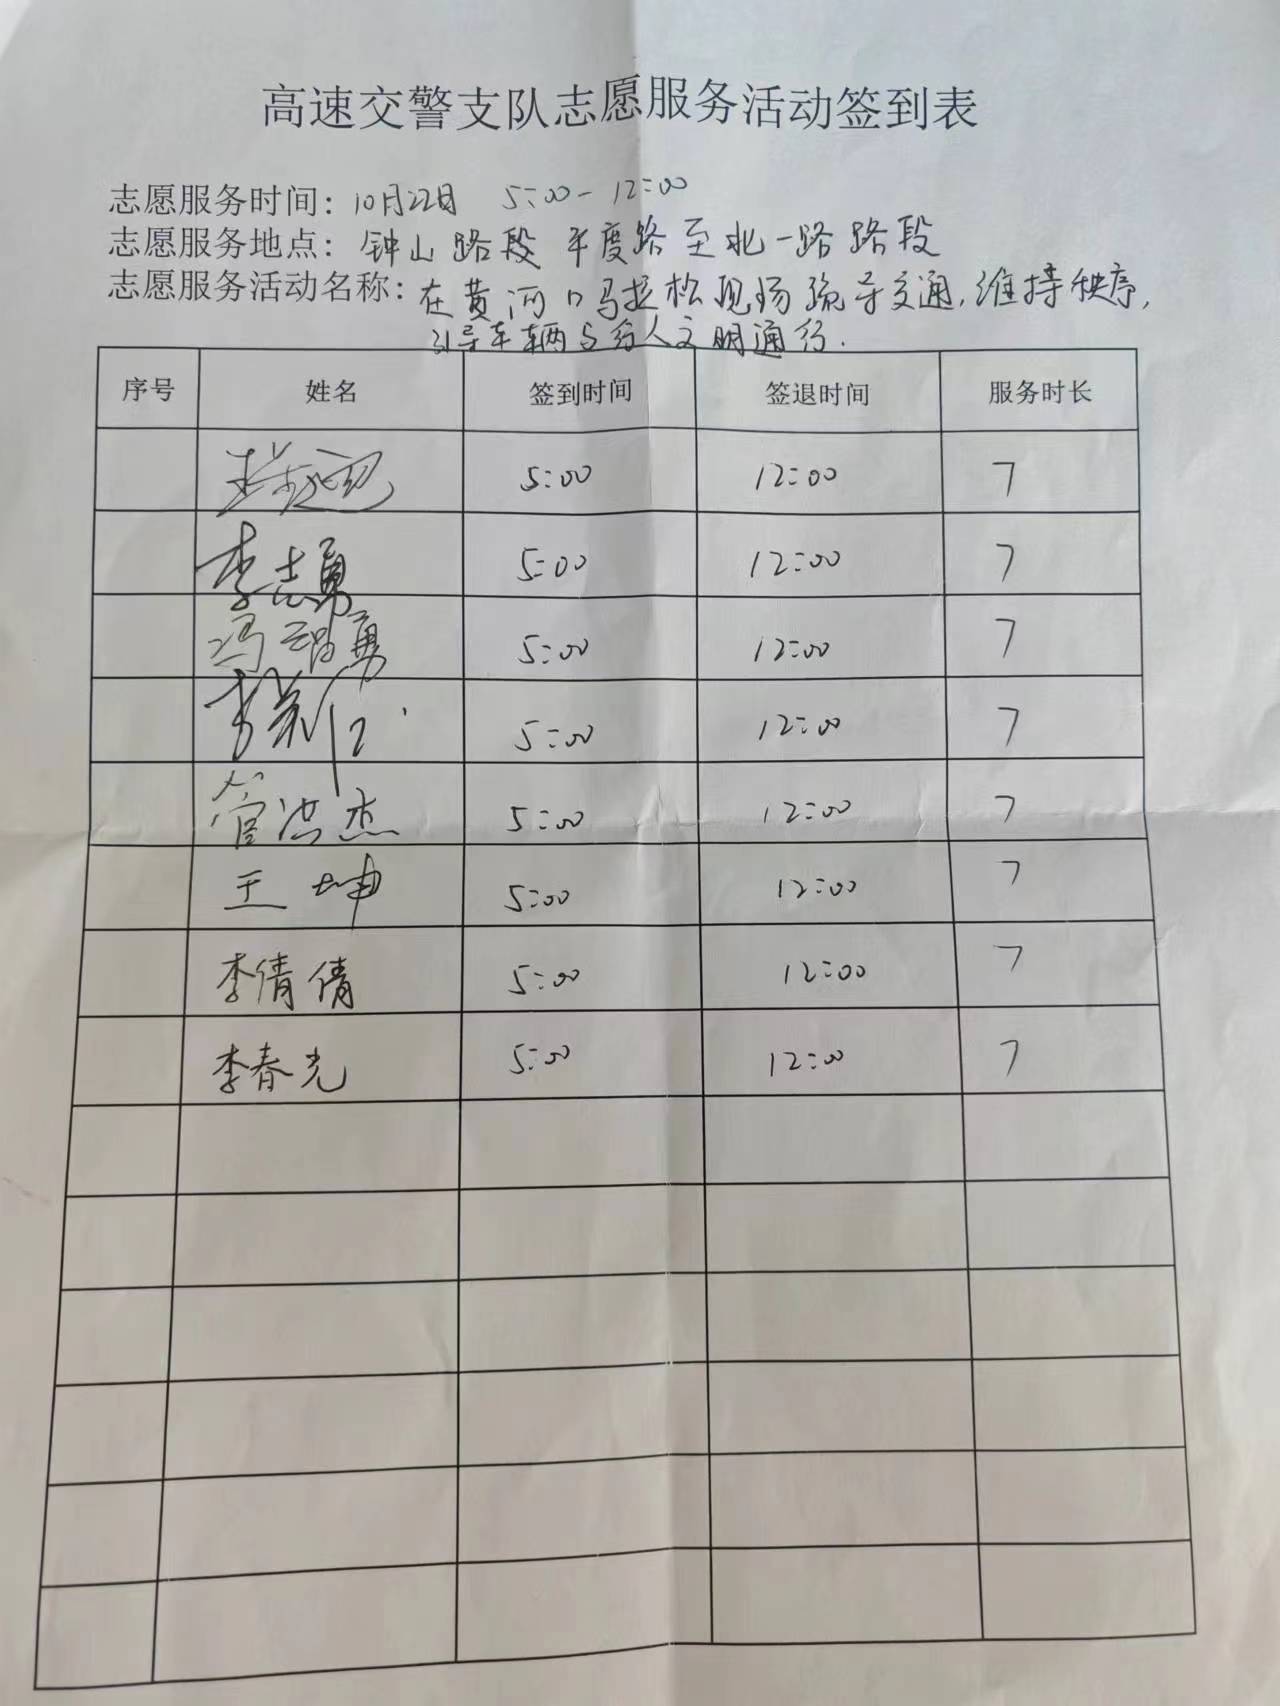 高速交警支队志愿服务活动签到表
志愿服务时间：10月22日 5:00-12:00
志愿服务地点：钟山路段 平度路至北一路路段
志愿服务活动名称：在黄河口马拉松现场疏导交通,维持秩序,
引导车辆与行人文明通行.
序号 姓名 签到时间 签退时间 服务时长
5:00 12:00 7
李志勇 5:00 12:00 7
冯 勇 5:00 12:00 7
李 5:00 12:00 7
管洪杰 5:00 12:00 7
王坤 5:00 12:00 7
李倩倩 5:00 12:00 7
李春光 5:00 12:00 7